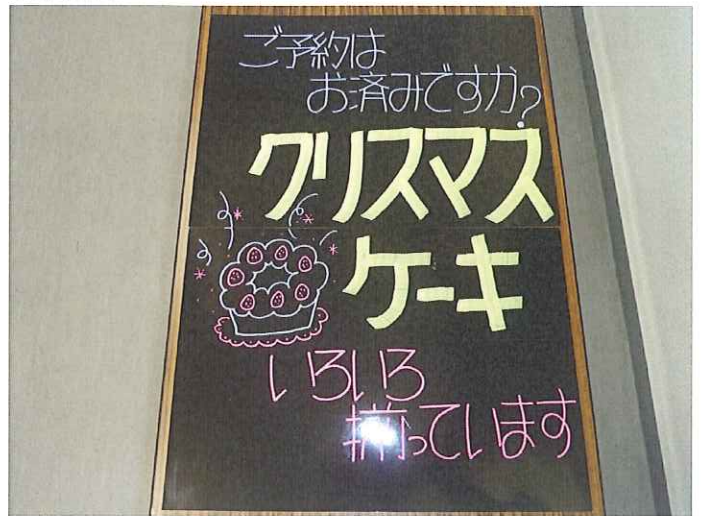 ご予約は
お済みですか?
クリスマス
ケーキ
いろいろ
揃っています